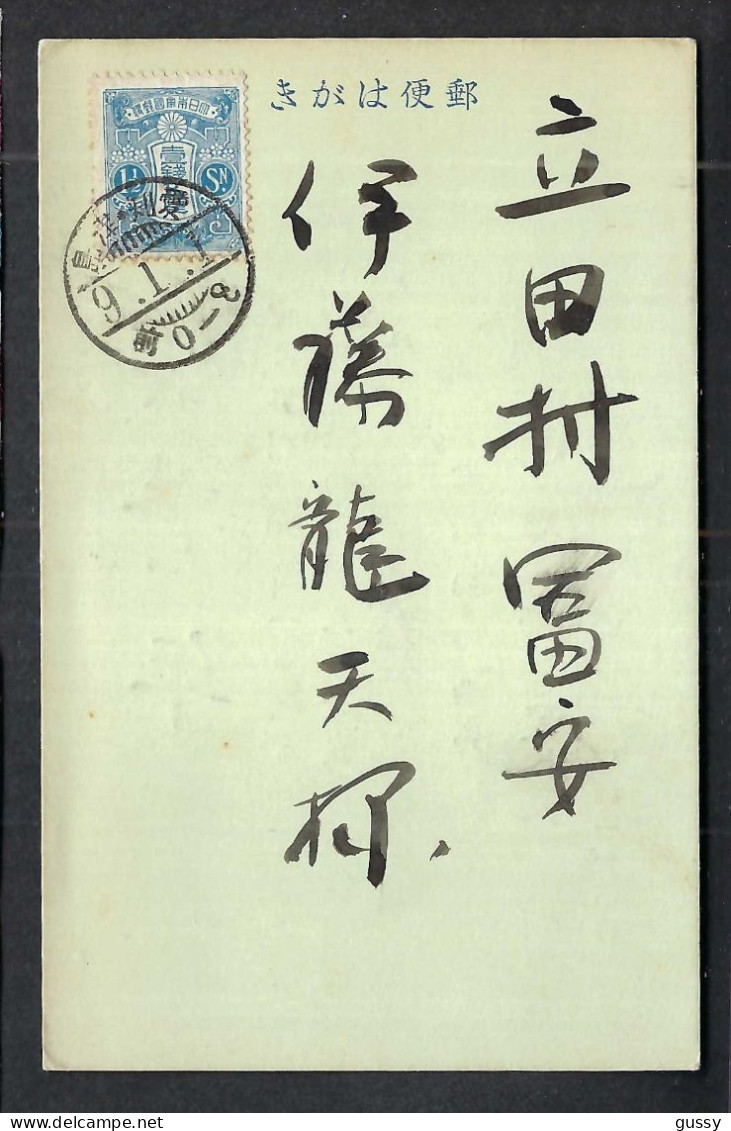 郵便はがき
立田村 冨安
伊藤龍天様
大日本帝國郵便
壹錢
1½ SN
愛知
9.1.1
前 0-8
gussy